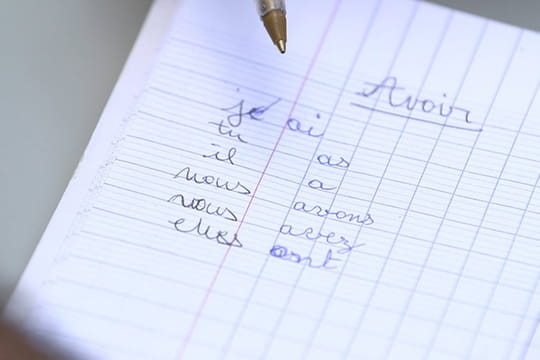 Avoir
je ai
tu as
il a
nous avons
vous avez
elles ont